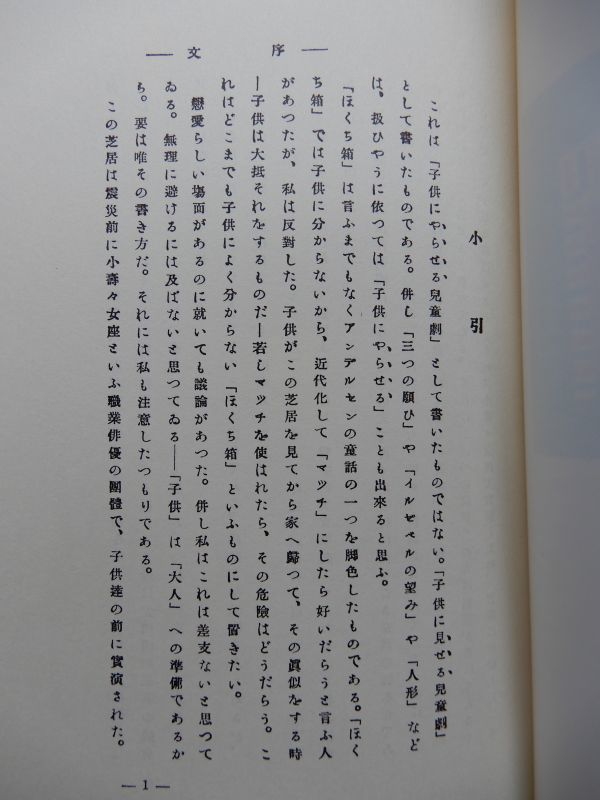 ── 文　　序 ──
小　引
これは「子供にやらせる兒童劇」として書いたものではない。「子供に見せる兒童劇」
として書いたものである。併し「三つの願ひ」や「イルゼベルの望み」や「人形」など
は、扱ひやうに依つては「子供にやらせる」ことも出來ると思ふ。
「ほくち箱」は言ふまでもなくアンデルセンの童話の一つを脚色したものである。「ほく
ち箱」では子供に分からないから、近代化して「マツチ」にしたら好いだらうと言ふ人
があつたが、私は反對した。子供がこの芝居を見てから家へ歸つて、その眞似をする時
―子供は大抵それをするものだ―若しマツチを使はれたら、その危險はどうだらう。こ
れはどこまでも子供によく分からない「ほくち箱」といふものにして置きたい。
戀愛らしい場面があるのに就いても議論があつた。併し私はこれは差支ないと思つて
ゐる。無理に避けるには及ばないと思つてゐる──「子供」は「大人」への準備であるか
ち。要は唯その書き方だ。それには私も注意したつもりである。
この芝居は震災前に小壽々女座といふ職業俳優の團體で、子供達の前に實演された。
— 1 —